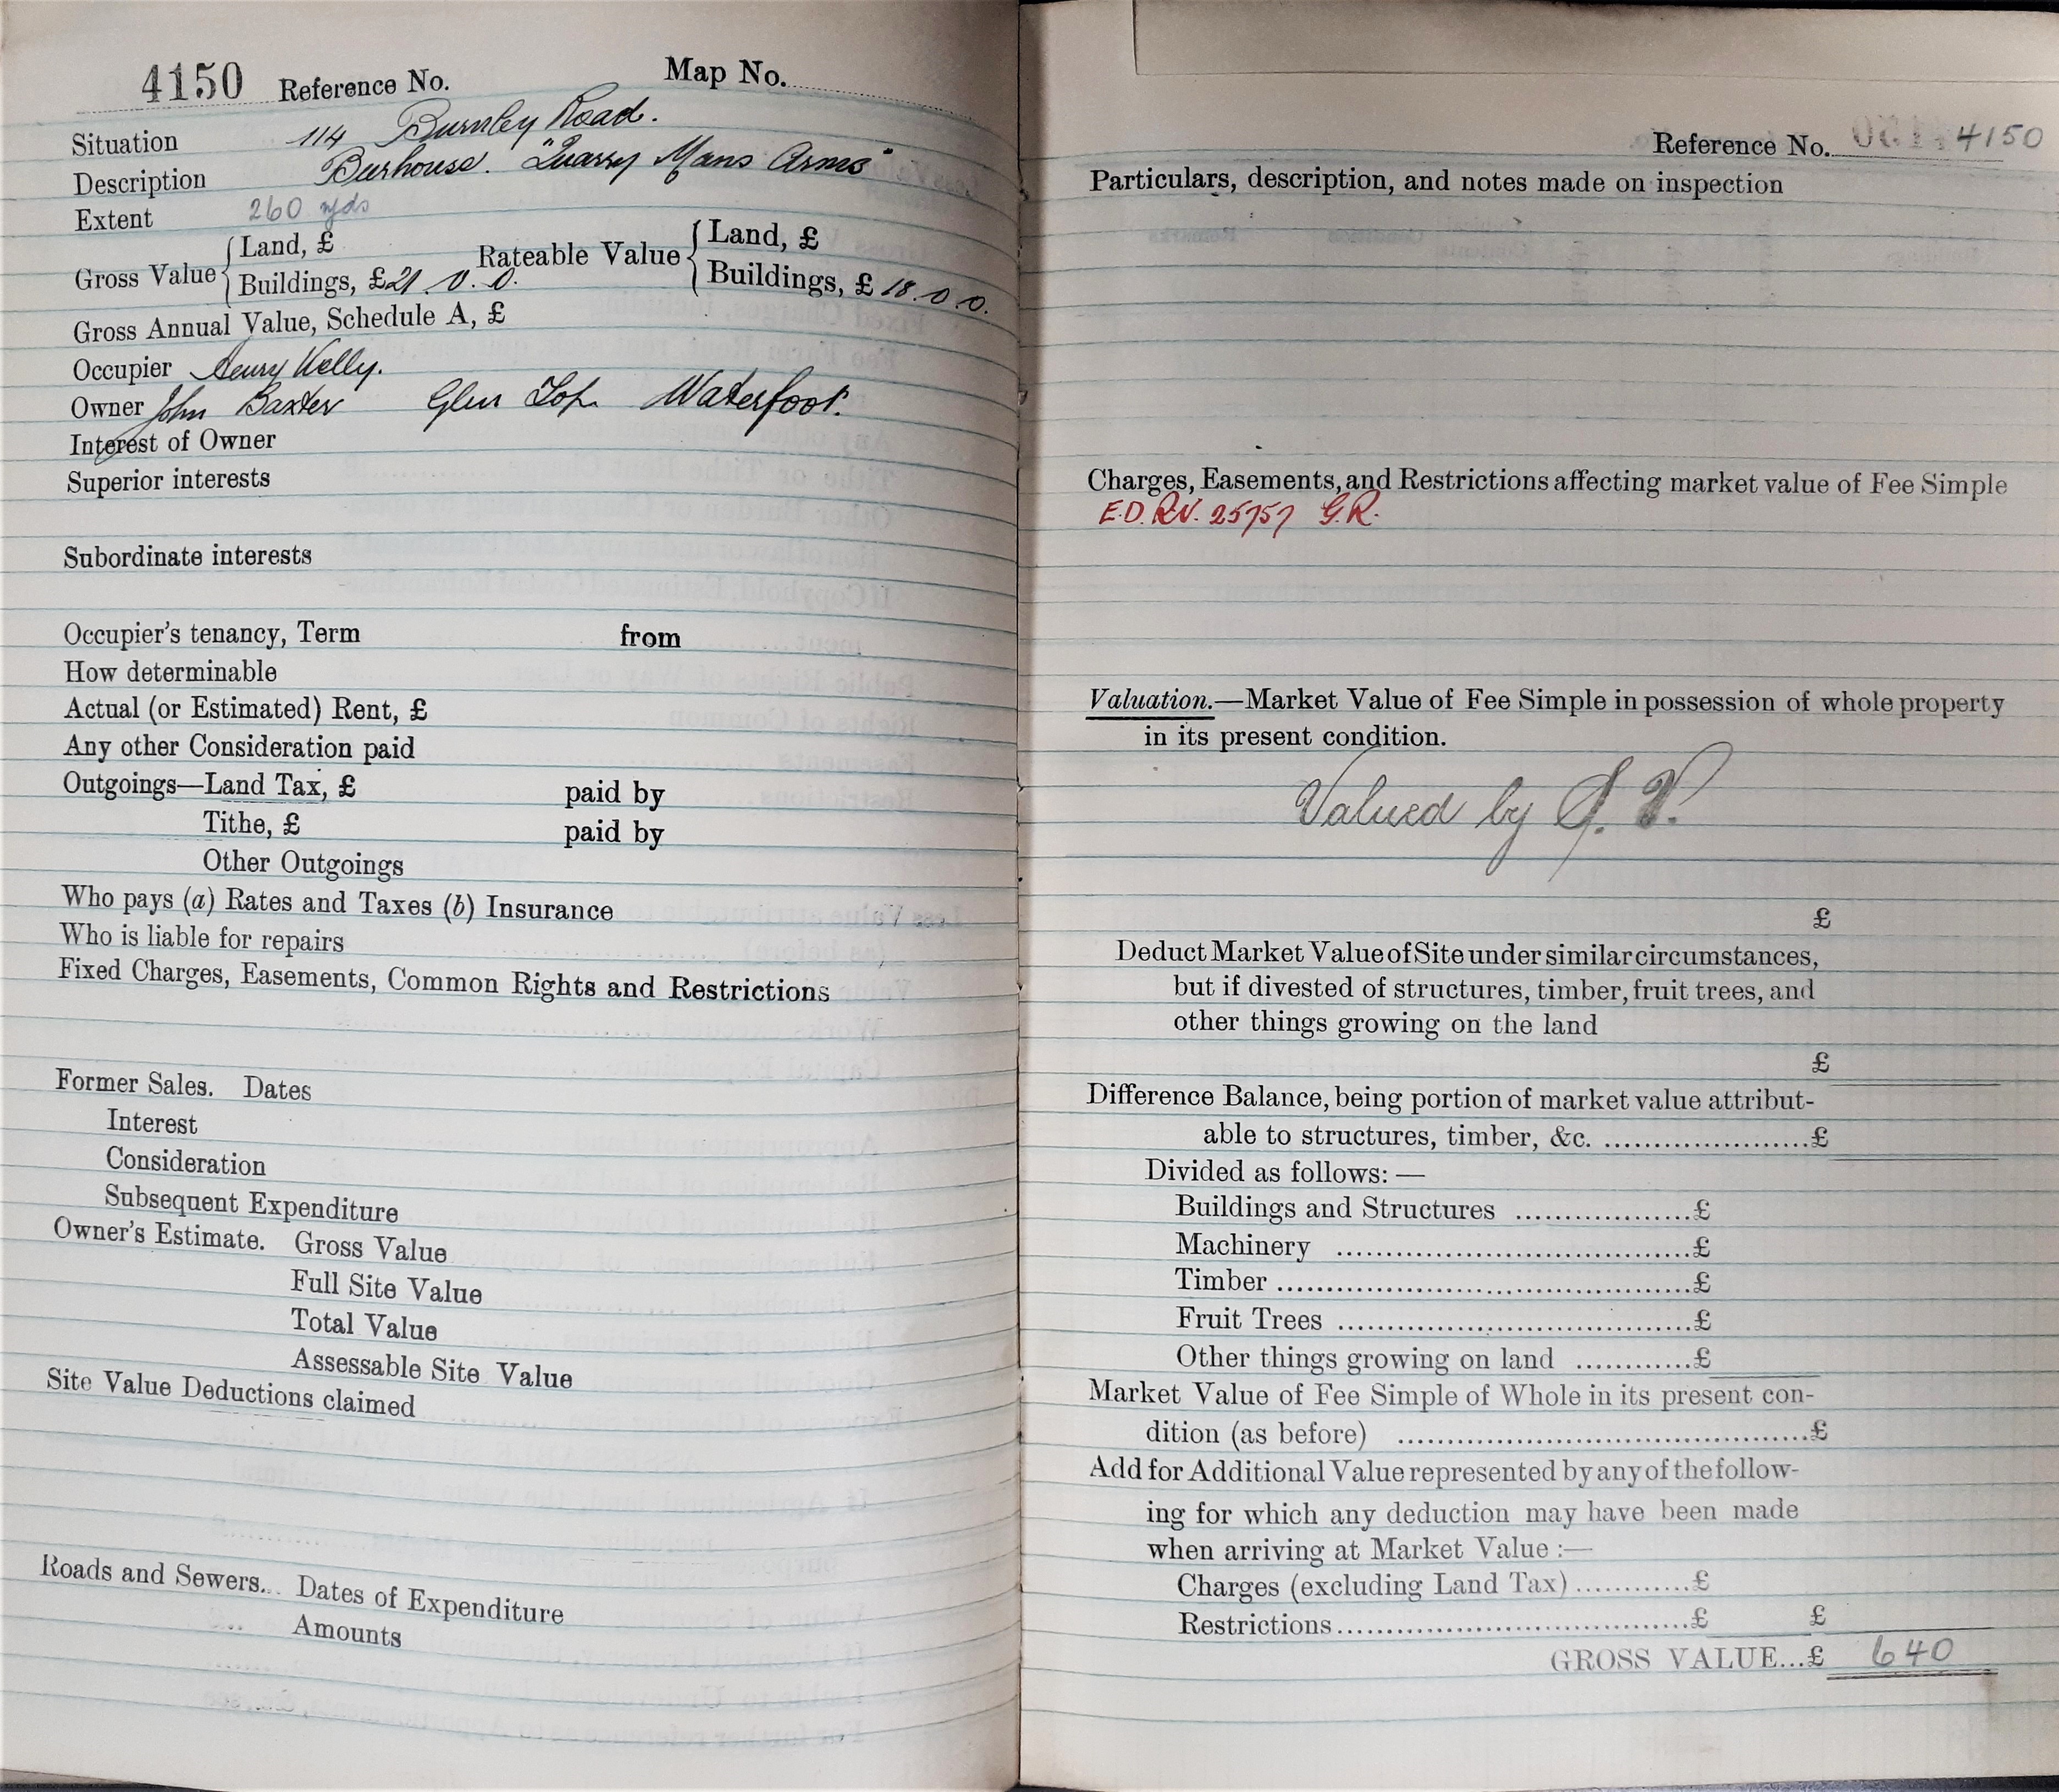 4150 Reference No. Map No.
Situation 114 Burnley Road.
Description Beerhouse. "Quarry Mans Arms"
Extent 260 yds
Gross Value { Land, £ Rateable Value { Land, £
Buildings, £21. 0. 0. Buildings, £ 18. 0. 0.
Gross Annual Value, Schedule A, £
Occupier Henry Kelly.
Owner John Baxter Glen Top Waterfoot.
Interest of Owner
Superior interests
Subordinate interests
Occupier's tenancy, Term from
How determinable
Actual (or Estimated) Rent, £
Any other Consideration paid
Outgoings—Land Tax, £ paid by
Tithe, £ paid by
Other Outgoings
Who pays (a) Rates and Taxes (b) Insurance
Who is liable for repairs
Fixed Charges, Easements, Common Rights and Restrictions
Former Sales. Dates
Interest
Consideration
Subsequent Expenditure
Owner's Estimate. Gross Value
Full Site Value
Total Value
Assessable Site Value
Site Value Deductions claimed
Roads and Sewers... Dates of Expenditure
Amounts
Reference No. 4150
Particulars, description, and notes made on inspection
Charges, Easements, and Restrictions affecting market value of Fee Simple
E.D. RV. 25757 G.R.
Valuation.—Market Value of Fee Simple in possession of whole property
in its present condition.
Valued by
£
Deduct Market Value of Site under similar circumstances,
but if divested of structures, timber, fruit trees, and
other things growing on the land
£
Difference Balance, being portion of market value attribut-
able to structures, timber, &c. ......................£
Divided as follows:—
Buildings and Structures ....................£
Machinery ........................................£
Timber ...............................................£
Fruit Trees ........................................£
Other things growing on land ............£
Market Value of Fee Simple of Whole in its present con-
dition (as before) ...............................................£
Add for Additional Value represented by any of the follow-
ing for which any deduction may have been made
when arriving at Market Value :—
Charges (excluding Land Tax) ............£
Restrictions.........................................£ £
GROSS VALUE...£ 640